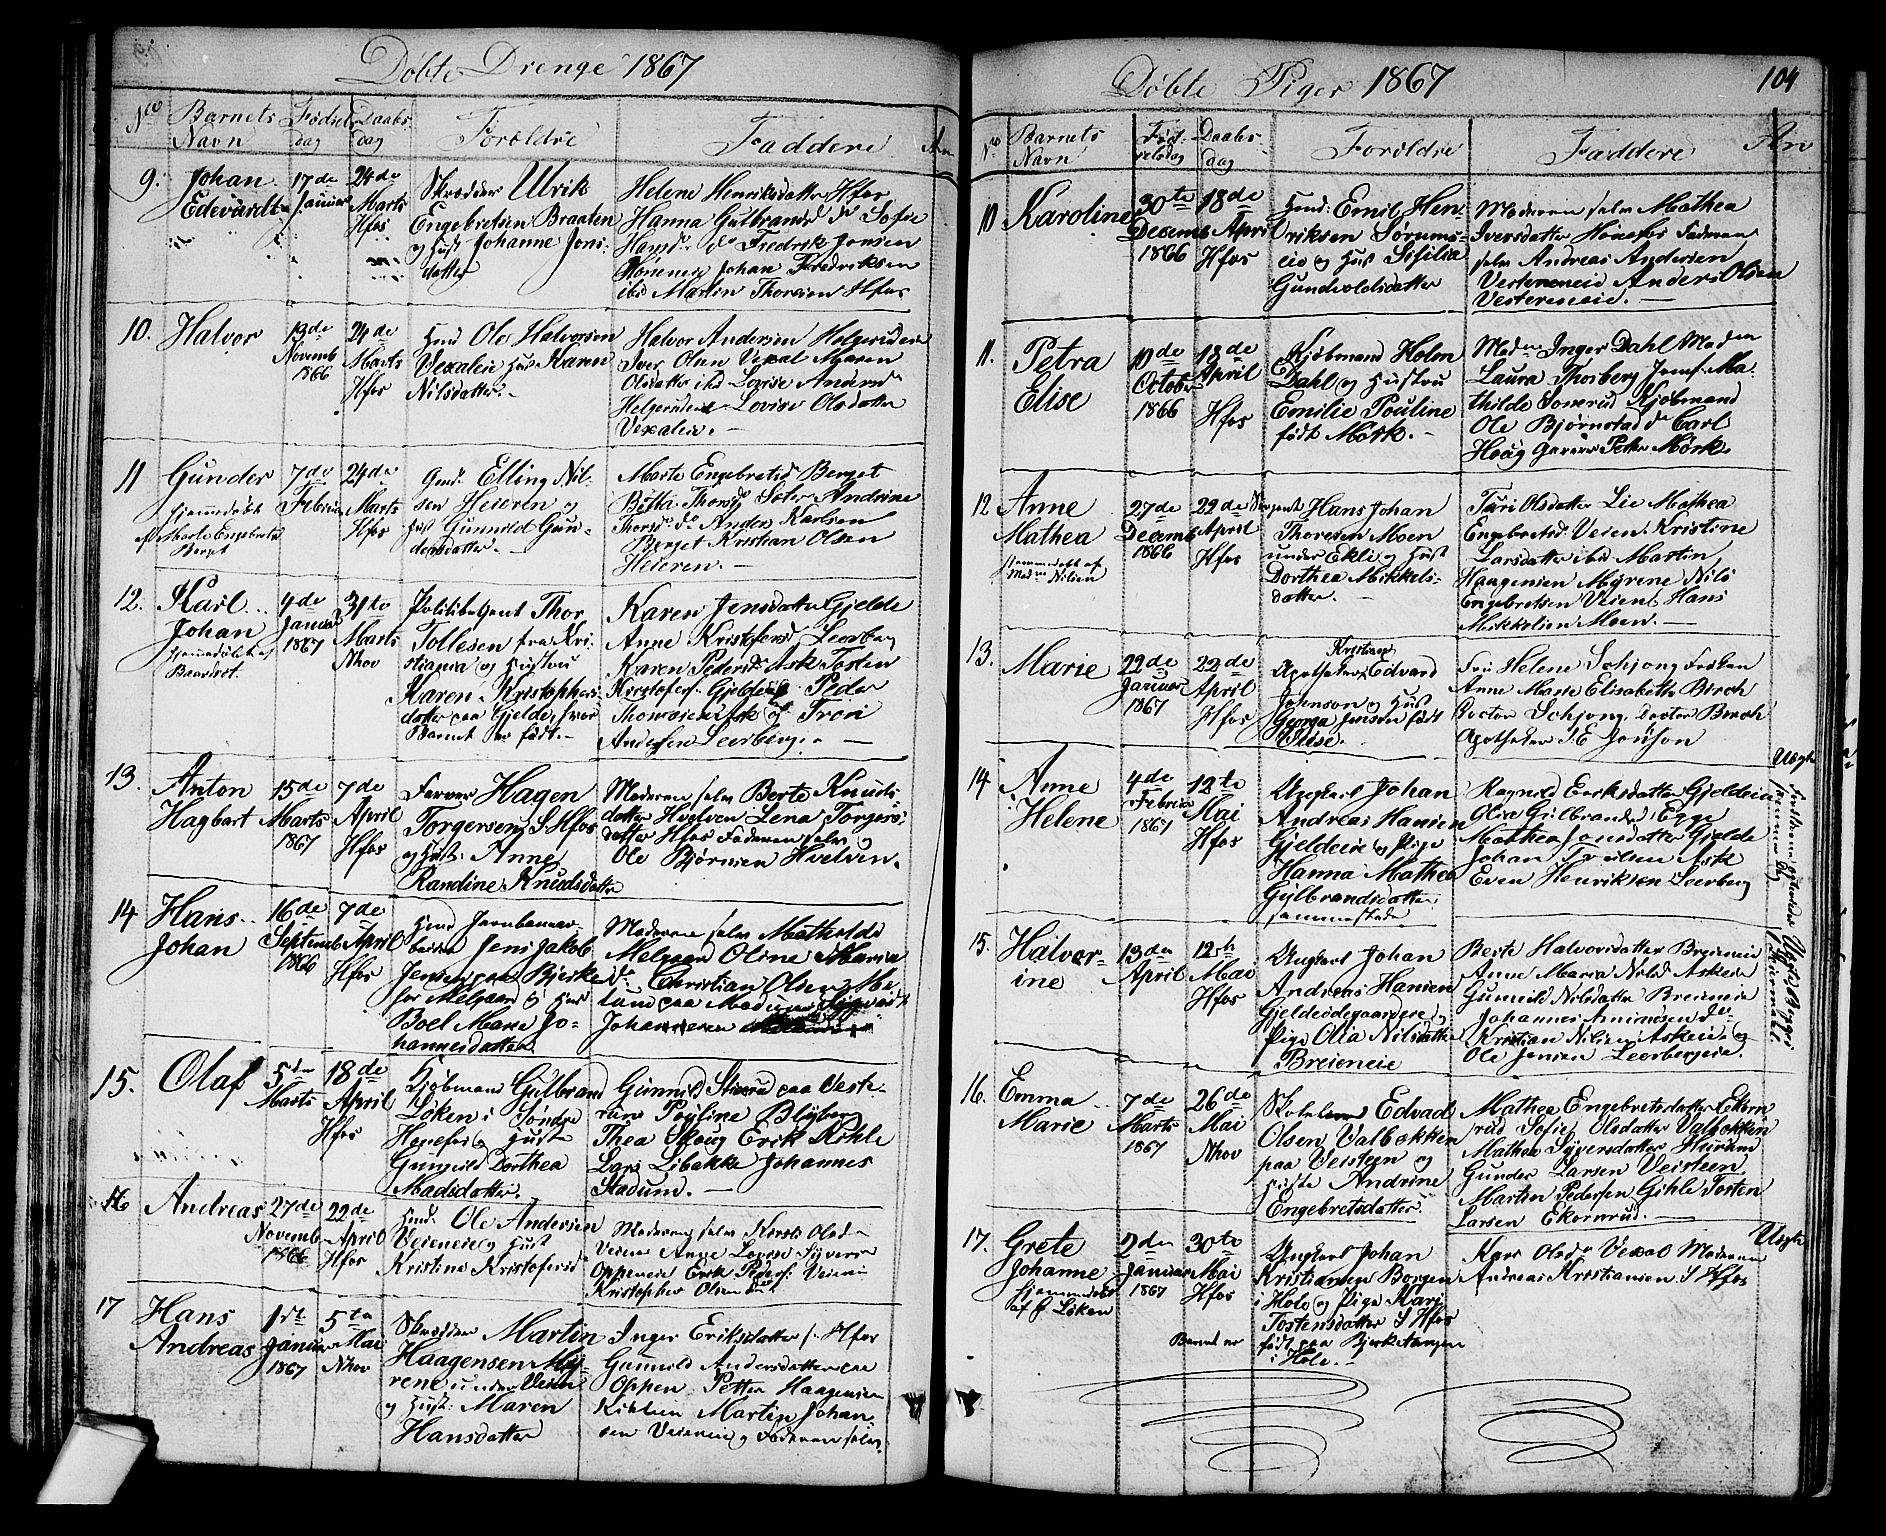 Døbte Drenge 1867
No Barnets Navn Fødsels dag Daabs dag Forældre Faddere An
9. Johan Edevardt 17de Januar 24de Marts Hfos
Skrædder Ulrik
Engebretsen Braaten
og Hust Johanne Jons-
datter
Helene Henriksdatter Hfos
Hanna Gulbrandsd do Sofie
do Fredrik Jonsen
Johan Fredriksen
ibid Martin Thoresen Hfos
10. Halvor 13de Novemb 1866 24de Marts Hfos
Hmd Ole Halvorsen
Vexaleie Hust Karen
Nilsdatter.-
Halvor Andersen Helgerudeie
Iver Olsen Vexal Maren
Olsdatter ibid Lovise Andersd
Helgerudeie Lovise Olsdatter
Vexaleie. -
11 Gunder 7de Februar 24de Marts Hfos
hjemmedøbt
af Marte Engebretsd
Berget
Gmd. Elling Nil-
sen Heieren og
Hust Gunnild Gun-
dersdatter. -
Marte Engebretsd Berget
Berta Thorsd Andrine
Thorsd do Anders Karlsen
Berget Kristian Olsen
Heieren. -
12. Karl Johan 4de Januar 1867 31te Marts Nhov
hjemmedøbt af
Politibetjent Thor
Tollesen fra Kri-
stiania og Hustru
Karen Kristophers-
datter paa Gjelde, hvor
Barnet er født. -
Karen Jensdatter Gjelde
Anne Kristofersd Leerberg
Karen Pedersd Ask Tosten
Kristofers. Gjelde Peder
Thomesen Ask og Tron
Andersen Leerberg. -
13. Anton Hagbart 15de Marts 1867 7de April Hfos
Farver Hagen
Torgersen S Hfos
og Hust. Anne
Randine Knudsdatter
Moderen selv Berte Knuds-
datter Hvelven Lena Torgers-
datter Hfos Faderen selv
Ole Bjørnsen Hvelven.
14 Hans Johan 16de Septemb 1866 7de April Hfos
Hmd Jernbanear-
beider Jens Jakob
Jensen paa Bjerke
for Melgaard og Hust
Boel Marie Jo-
hannesdatter
Moderen selv Mathilde
Melgaard Oline Maria
do Christian Olsen
Johannesen
15. Olaf 5te Marts 18de April Hfos
Kjøbmand Gulbrand
Løken i Søndre
Hønefos og Hust
Gunhild Dorthea
Madsdatter.
Gunnild Stixrud paa Vest-
ern Pauline Bligberg
Thea Skoug Erik Kihle
Lars Libakke Johannes
Stadum. -
16 Andreas 27de Novemb 1866 22de April Hfos
Hmd. Ole Andersen
Veieneie og Hust
Kristine Kristofersd
Moderen selv Kirsti Olsd
Veien Anne Lovise Syvers
Oppeneie Erik Peders. Veien
Kristopher Olsen
17 Hans Andreas 1ste Januar 1867 5te Mai Nhov
Skrædder Martin
Haagensen My-
rene under Veien
og Hust. Maren
Hansdatter
Inger Eriksdatter S. Hfos
Gunnild Andersdatter paa
Oppen Petter Haagensen
Martin Johan-
sen Veieneie og Faderen selv
Døbte Piger 1867 104
No Barnets Navn Fødselsdag Daabs dag Forældre Faddere An
10 Karoline 30te Decemb 1866 18de April Hfos
Hmd. Emil Hen-
riksen Sørums-
eie og Hust Sisilia
Gundvoldsdatter
Moderen selv Mathea
Iversdatter Hønefos Faderen
selv Andreas Andersen
Vesterneneie Anders Olsen
Vesterneneie. -
11. Petra Elise 10de October 1866 18de April Hfos
Kjøbmand Holm
Dahl og Hustru
Emilie Pouline
født Mørk. -
Madm Inger Dahl Madm
Laura Thorberg Jomf. Ma-
thilde Somrud Kjøbmand
Ole Bjørnstad do Carl
Houg Garver Petter Mørk.
12 Anne Mathea 27de Decemb 1866 22de April Hfos
hjemmedøbt af
Madm Nilsen
Sergent Hans Johan
Thoresen Moen
under Ekli og Hust
Dorthea Mikkels-
datter. -
Turi Olsdatter Lie Mathea
Engebretsd. Veien Kristine
Larsdatter ibid Martin
Haagensen Myrene Nils
Engebretsen Veien Hans
Mikkelsen Moen. -
13. Marie 22de Januar 1867 22de April Hfos
Kristian
Apotheker Edvard
Johnson og Hust
Georga Jensen født
Wiise.
Fru Helene Schjong Frøken
Anne Marie Elisabeth Birch
Doctor Schjong Doctor Birch
Apotheker J. E. Jonson
14 Anne Helene 4de Februar 1867 12te Mai Hfos
Ungkarl Johan
Andreas Hansen
Gjeldeeie og Pige
Hanna Mathea
Gulbrandsdatter
sammesteds
Ragnild Eriksdatter Gjeldeeie
Olia Gulbrandsd. Egge
Mathea Jonsdatter Gjelde
Johan Ask
Even Henriksen Leerberg
Uægte
15. Halvor-
ine 13de April 12te Mai Hfos
Ungkarl Johan
Andreas Hansen
Gjeldeødegaardseie og
Pige Olia Nilsdatter
Breieneie
Berte Halvorsdatter Breieneie
Anne Maria Nilsd Askeeie
Gunvild Nilsdatter Breieneie
Johannes do
Kristian Nilsen Askeeie og
Ole Jensen Leerbergeie.
16. Emma Marie 7de Marts 1867 26de Mai Nhov
Edvad
Olsen Valbakken
paa Veisteen og
Huste Andrine
Engebretsdatter.
Mathea Engebretsdatter Ekorn-
rud Sofie Olsdatter Valbakken
Mathea Syversdatter
Gunder Larsen Veisteen
Martin Pedersen Gihle Tosten
Larsen Ekornrud. -
17. Grete Johanne 2den Januar 1867 30te Mai Hfos
hjemmedøbt
af G Løken
Ungkarl Johan
Kristiansen Borgen
i Hole og Pige Kari
Tostensdatter S Hfos
Barnet er født paa Bjerketangen
i Hole. -
Kari Olsd Vexal Moderen
Andreas Kristiansen S Hfos
Uægte